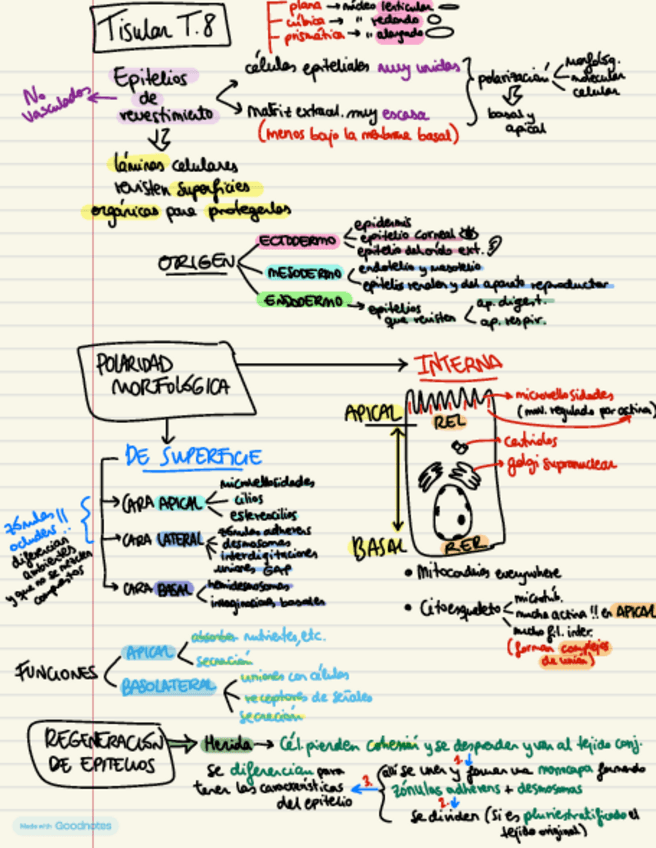 Tisular T.8
plana → núcleo lenticular
cúbica → " redondo
prismática → " alargado
Epitelios de revestimiento
No vasculados
células epiteliales muy unidas
Matriz extracel. muy escasa
(menos bajo la membrana basal)
polarización
morfológ.
molecular
celular
basal y apical
láminas celulares
revisten superficies
orgánicas para protegerlas
ORIGEN
ECTODERMO
epidermis
epitelio corneal
epitelio del oído ext.
MESODERMO
endotelio y mesotelio
epitelios renales y del aparato reproductor
ENDODERMO
epitelios que revisten
ap. digest.
ap. respir.
POLARIDAD MORFOLÓGICA
INTERNA
microvellosidades
(mov. regulado por actina)
APICAL
REL
centriolos
golgi supranuclear
BASAL
RER
DE SUPERFICIE
CARA APICAL
microvellosidades
cilios
estereocilios
CARA LATERAL
zónulas adherens
desmosomas
interdigitaciones
uniones GAP
CARA BASAL
hemidesmosomas
invaginaciones basales
zónulas !! ocludens
diferencian ambientes
y que no se mezclen
compuestos
• Mitocondrias everywhere
• Citoesqueleto
microtúb.
mucha actina !! en APICAL
mucho fil. inter.
(forman complejos de unión)
FUNCIONES
APICAL
absorben nutrientes, etc.
secreción
BASOLATERAL
uniones con células
receptores de señales
secreción
REGENERACIÓN DE EPITELIOS
Herida → Cél. pierden cohesión y se desprenden y van al tejido conj.
1.
allí se unen y forman una monocapa formando
zónulas adherens + desmosomas
2.
se dividen (si es pluriestratificado el
tejido original)
3.
se diferencian para
tener las características
del epitelio
Made with Goodnotes